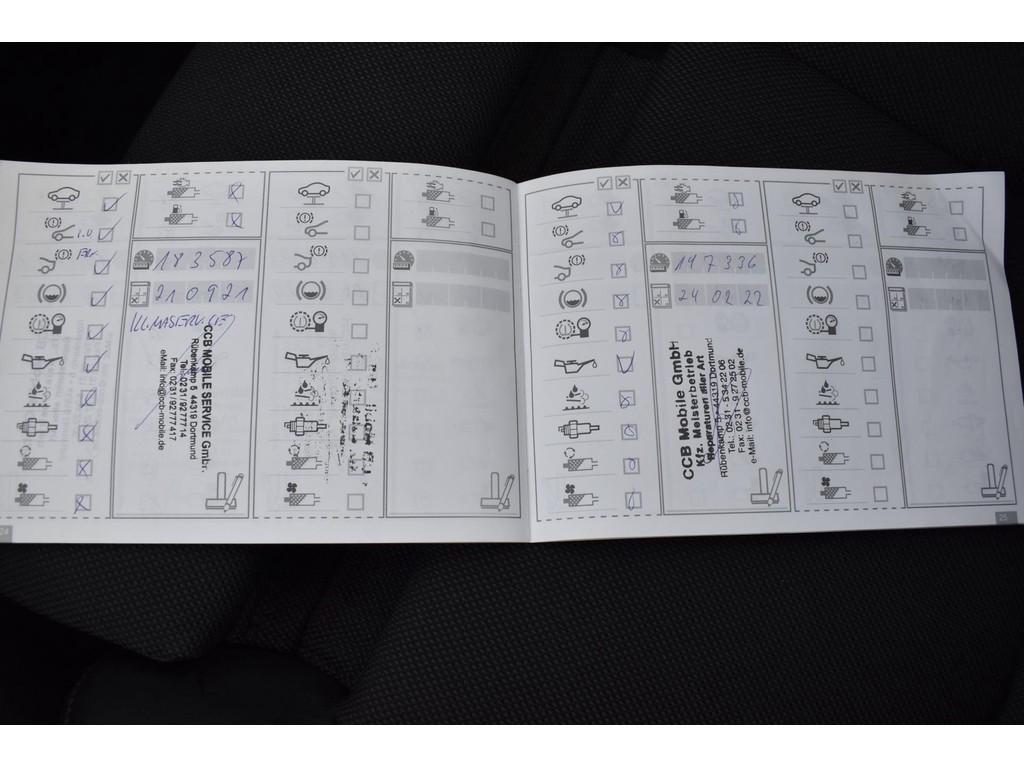 i.O
183587
210921
CCB MOBILE SERVICE GmbH
Rübenkamp 5 44319 Dortmund
Tel.: 0231/9277714
Fax: 0231/92777417
eMail: info@ccb-mobile.de
24
147336
24 02 22
CCB Mobile GmbH
Kfz. Meisterbetrieb
Reperaturen aller Art
Rübenkamp 5 • 44319 Dortmund
Tel.: 0231 - 534 22 06
Fax: 0231 - 9 27 25 02
e-Mail: info@ccb-mobile.de
25